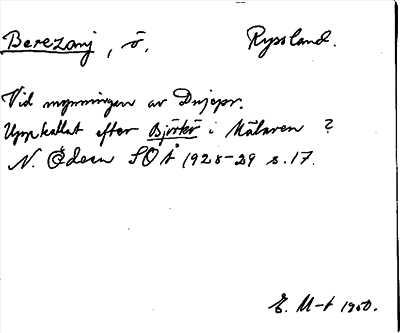 Berezanj, ö. Ryssland.
Vid mynningen av Dnjepr.
Uppkallat efter Björkö i Mälaren ?
N. Ödeen SOÅ 1928-29 s. 17.
E. M-t 1950.